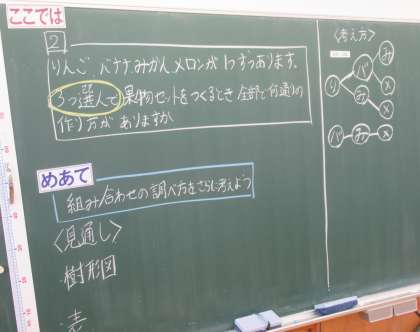 ここでは
2
りんご バナナ みかん メロンが1つずつあります。
3つ選んで果物セットをつくるとき 全部で何通りの
作り方が ありますか
めあて
組み合わせの調べ方をさらに考えよう
〈見通し〉
樹形図
表
〈考え方〉
り バ み
メ
み メ
バ み メ